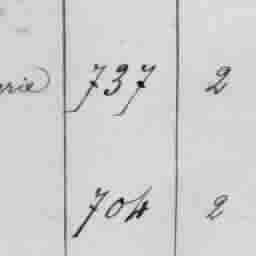 rie 737 2
704 2